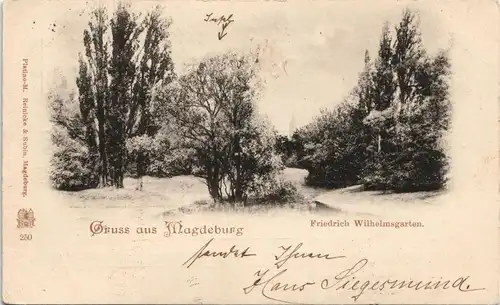 Insel
Platino-M. Reinicke & Rubin, Magdeburg
250
Gruss aus Magdeburg
Friedrich Wilhelmsgarten.
sendet Ihnen
Hans Siegesmund.